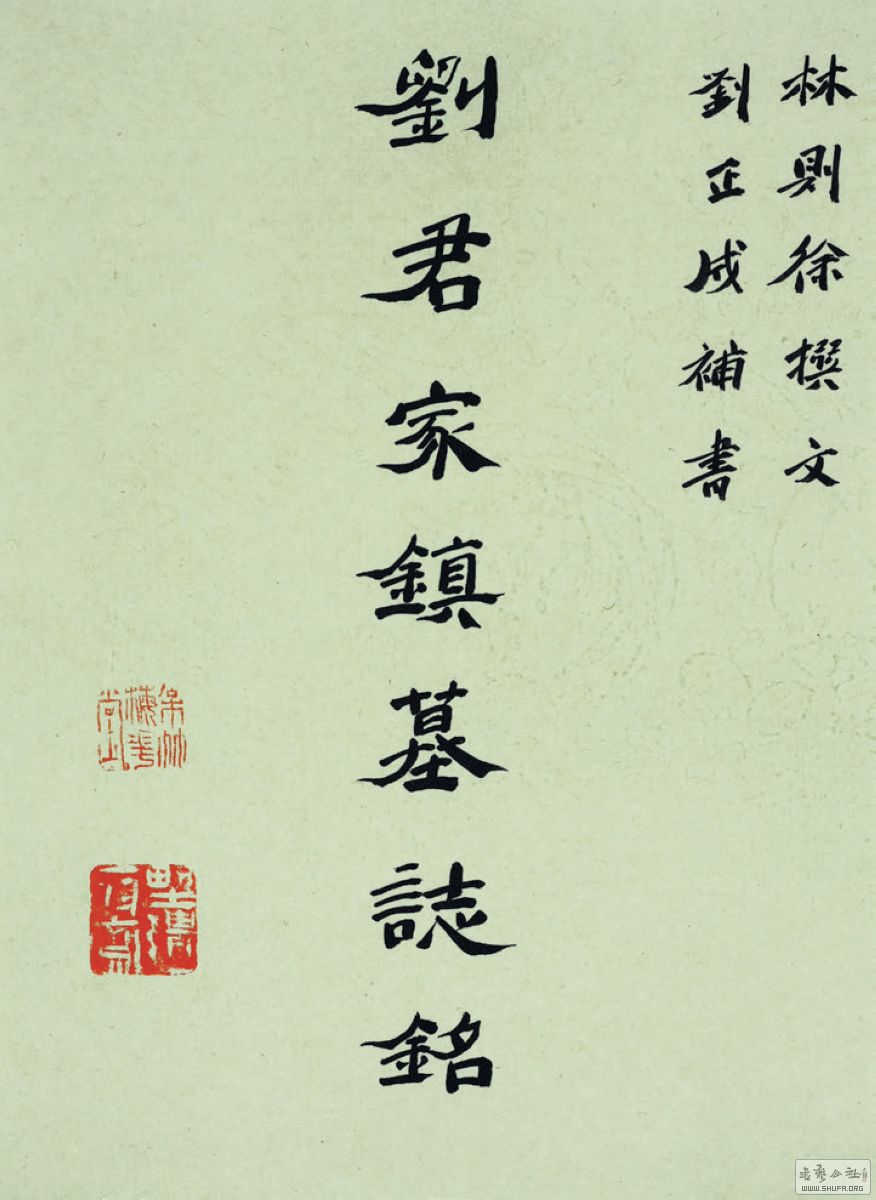 林則徐撰文
劉正成補書
劉君家鎮墓誌銘
WWW.SHUFA.ORG